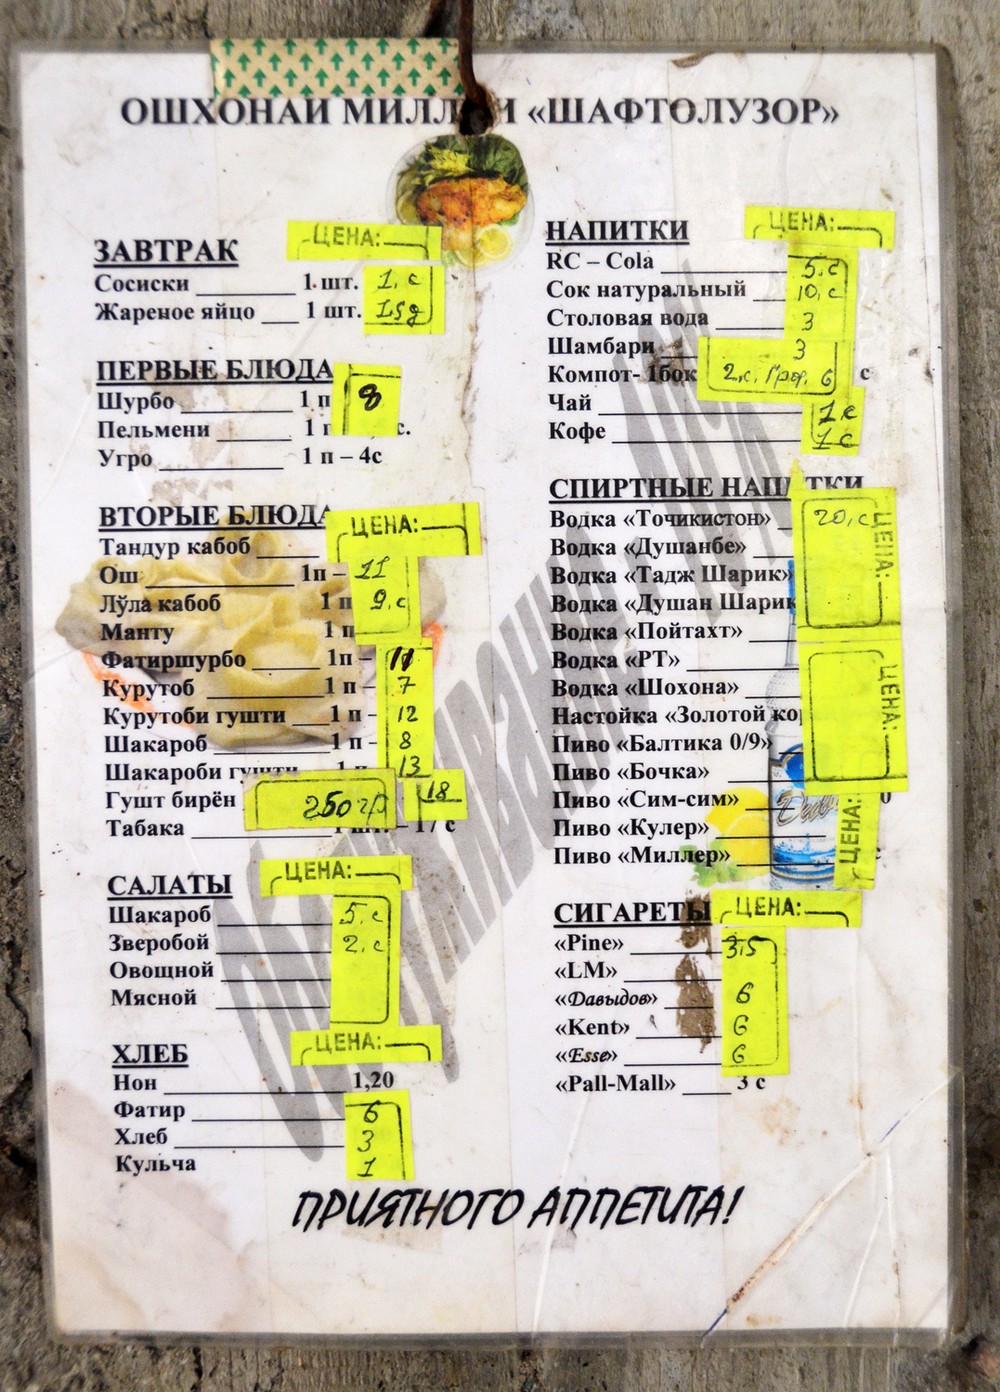 ОШХОНАИ МИЛЛ И «ШАФТОЛУЗОР»
ЗАВТРАК ЦЕНА:
Сосиски 1 шт. 1, с
Жареное яйцо 1 шт.
ПЕРВЫЕ БЛЮДА
Шурбо 1 п 8
Пельмени с.
Угро 1 п – 4с
ВТОРЫЕ БЛЮДА ЦЕНА:
Тандур кабоб
Ош 1п – 11
Лӯла кабоб 1 п 9, с
Манту 1 п
Фатиршурбо 1п – 11
Курутоб 1 п – 7
Курутоби гушти 1 п – 12
Шакароб 1 п – 8
Шакароби гушти 1 п 13
Гушт бирён 250 гр 18
Табака – 17 с
САЛАТЫ ЦЕНА:
Шакароб 5, с
Зверобой 2, с
Овощной
Мясной
ХЛЕБ ЦЕНА:
Нон 1,20
Фатир 6
Хлеб 3
Кульча 1
НАПИТКИ ЦЕНА:
RC – Cola 5, с
Сок натуральный 10, с
Столовая вода 3
Шамбари 3
Компот- 1бок 2, с. Гра. 6 с
Чай 1 с
Кофе 1 с
СПИРТНЫЕ НАПИТКИ
Водка «Точикистон» 20, с ЦЕНА:
Водка «Душанбе»
Водка «Тадж Шарик»
Водка «Душан Шарик
Водка «Пойтахт»
Водка «РТ» ЦЕНА:
Водка «Шохона»
Настойка «Золотой ко
Пиво «Балтика 0/9»
Пиво «Бочка»
Пиво «Сим-сим» 0
Пиво «Кулер» ЦЕНА:
Пиво «Миллер»
СИГАРЕТЫ ЦЕНА:
«Pine» 3,5
«LM»
«Давыдов» 6
«Kent» 6
«Esse» 6
«Pall-Mall» 3 с
ПРИЯТНОГО АППЕТИТА!